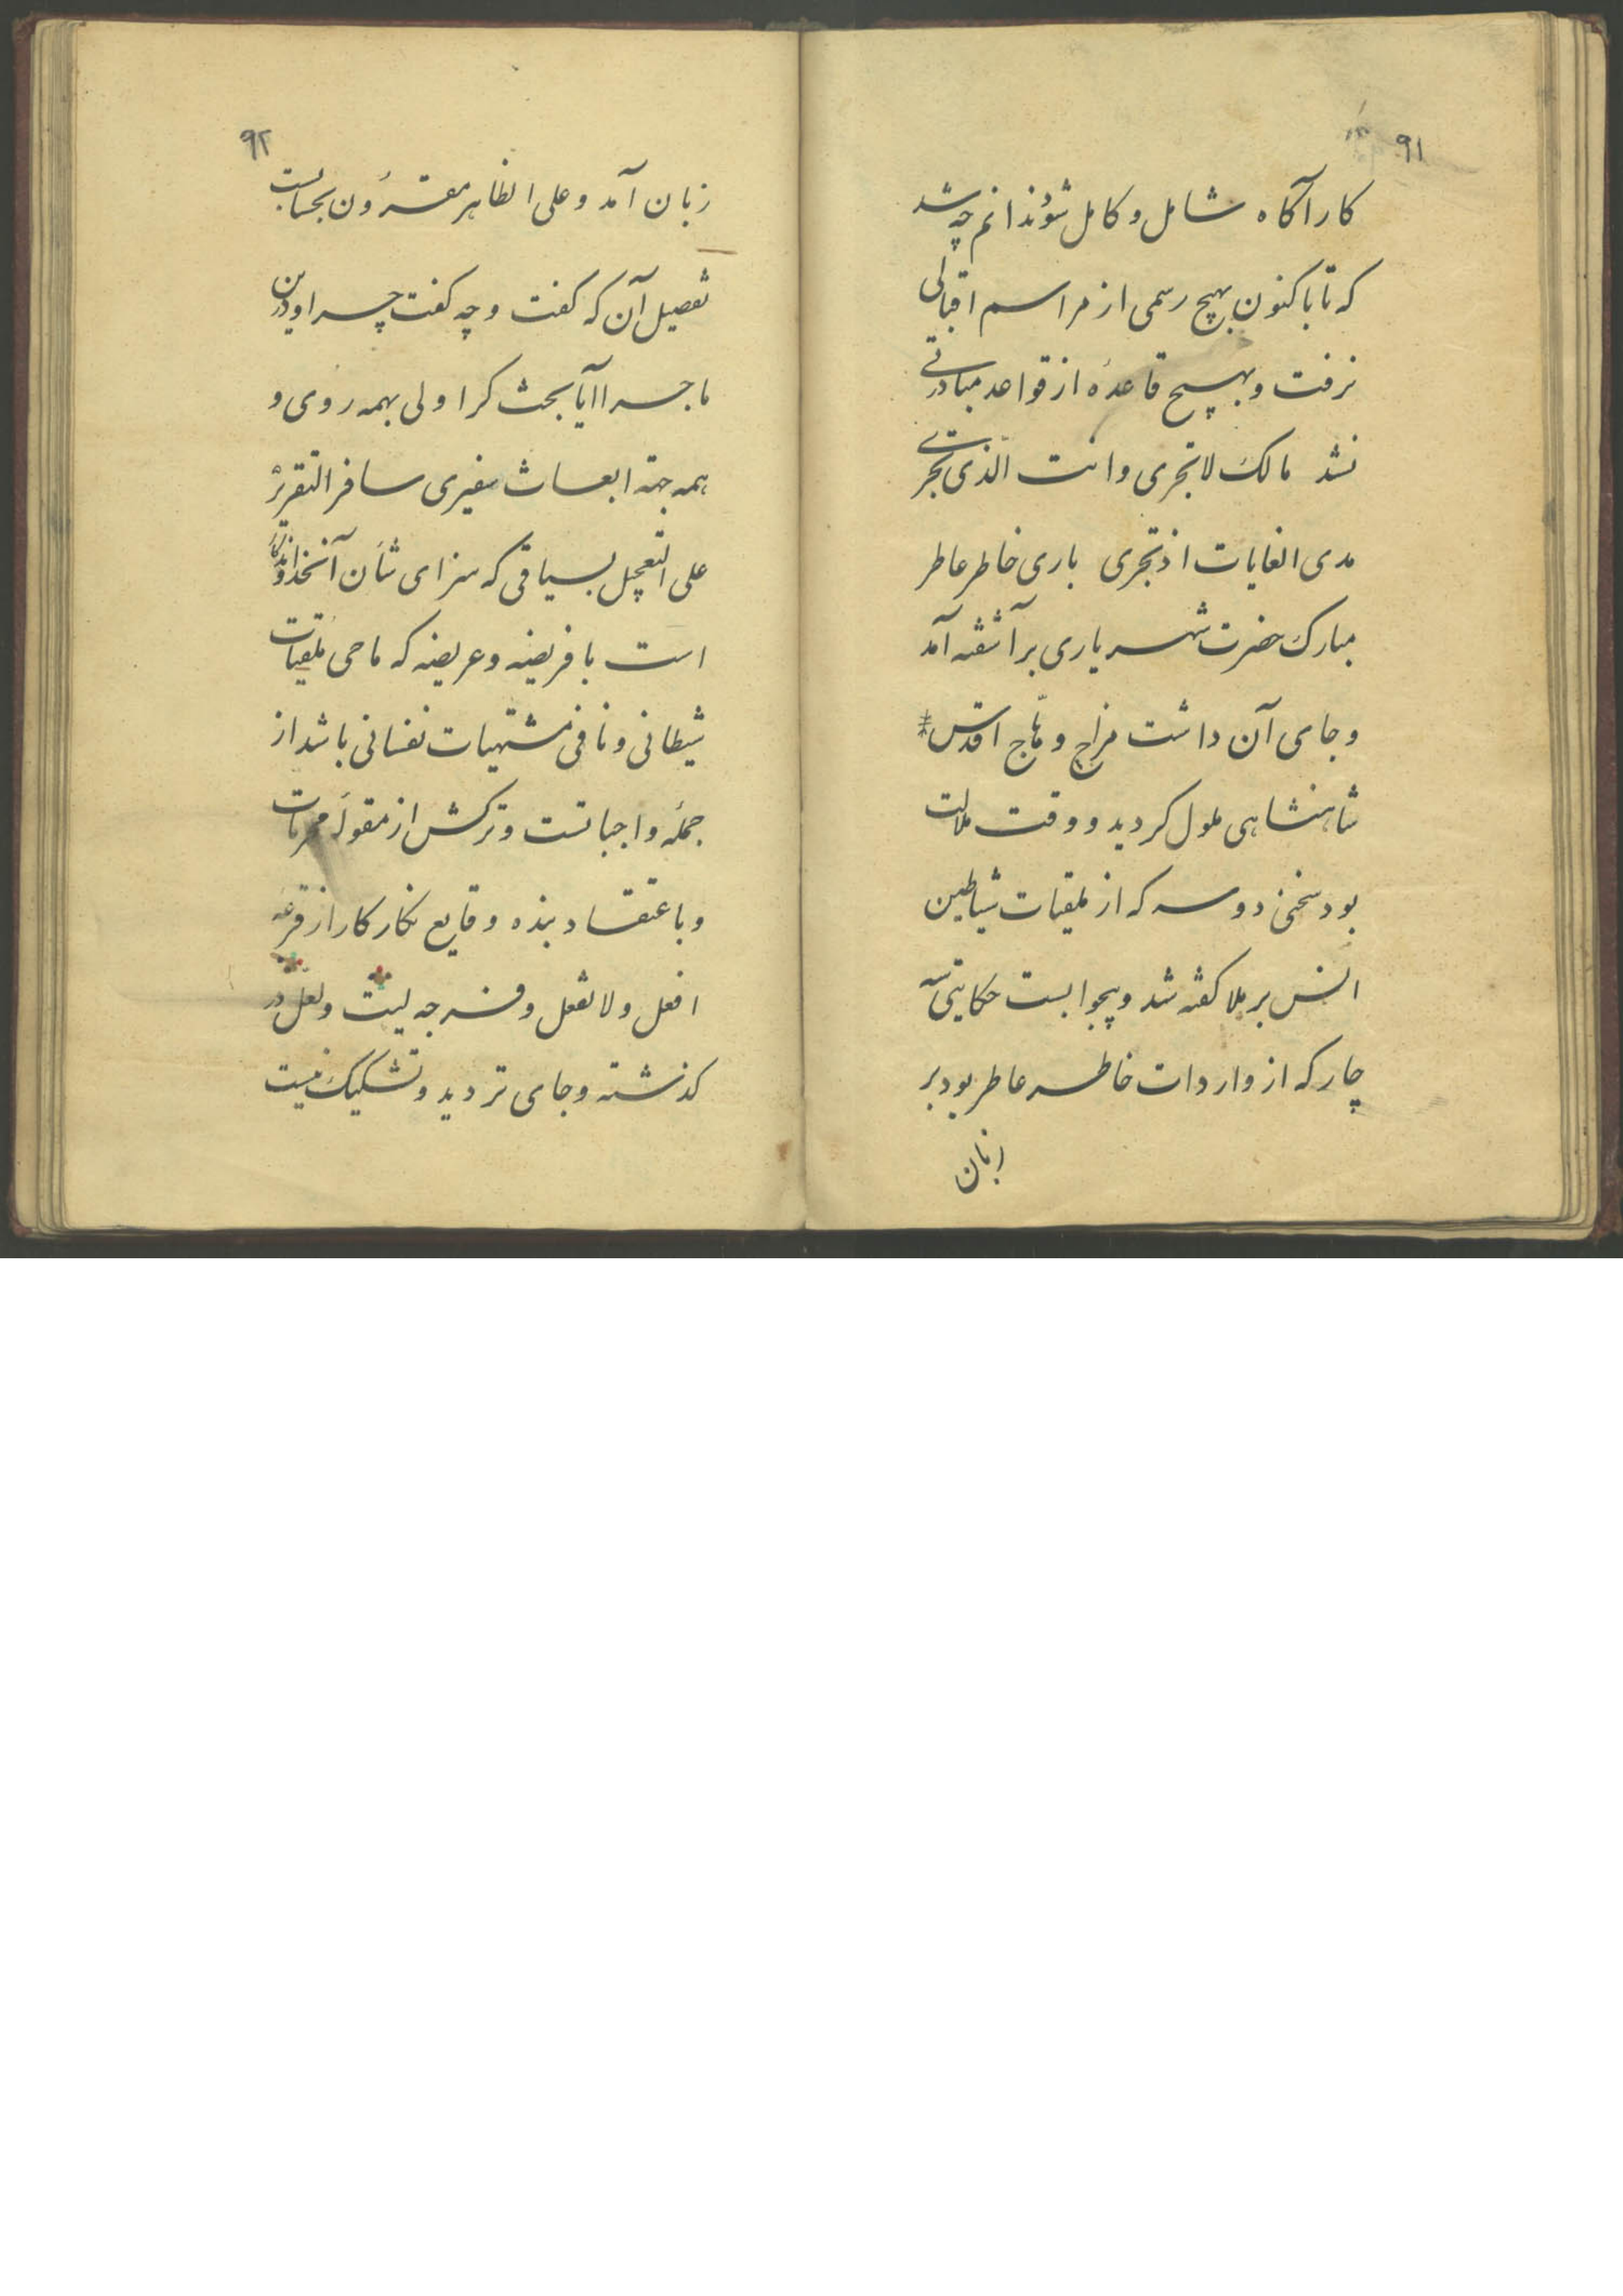 ۹۱
کارآگاه شامل و کامل شوند ندانم چه شد
که تا باکنون بهیچ رسمی از مراسم اقبالی
نرفت و بهیچ قاعدهٔ از قواعد مبادرتی
نشد مالک لا تجری وانت الّذی تجری
مدی الغایات اذ تجری باری خاطر عاطر
مبارک حضرت شهریاری برآشفته آمد
و جای آن داشت مزاج وهّاج اقدس
شاهنشاهی ملول کردید و وقت ملالت
بود سخنی دو سه که از ملقیات شیاطین
انس برملا کفته شد و بجوابست حکایتی سه
چار که از واردات خاطر عاطر بود بر
زبان
۹۲
زبان آمد و علی الظاهر مقرون بحسابست
تفصیل آن که کفت و چه کفت چرا و درین
ماجرا آیا بحث کرا ولی بهمه روی و
همه جهة ابعاث سفیری سافر التقریر
علی التعجیل بسیاقی که سزای شأن آنخداوندکار
است با فریضه و عریضه که ماحی ملقیات
شیطانی و نافی مشتهیات نفسانی باشد از
جملهٔ واجباتست و ترکش از مقولهٔ محرمات
و باعتقاد بنده وقایع نکار کار از قرعه
افعل ولا تفعل و فرجه لیت و لعل در
کذشته و جای تردید و تشکیک نیست